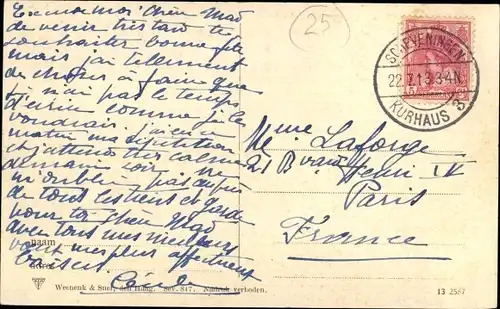 25
SCHEVENINGEN
22.7.13.3-4N
KURHAUS 3
Excuse moi Chère Mad
de venir si tard te
souhaiter bonne fête
mais j'ai tellement
de choses à faire que
je n'ai pas le temps
d'écrire comme je le
voudrais. j'ai eu ce
matin ma répétition
et j'attends très calme
demain soir. ne
m'oublie pas auprès
de tout les tiens et garde
pour toi Chère Mad
avec tous mes meilleurs
vœux mes plus affectueux
baisers
Cécile
Mme Lafonge
21 Bvard Henri IV
Paris
France
naam
adres
Weenenk & Snel, den Haag. Sev. 847. Nadruk verboden.
13 2587